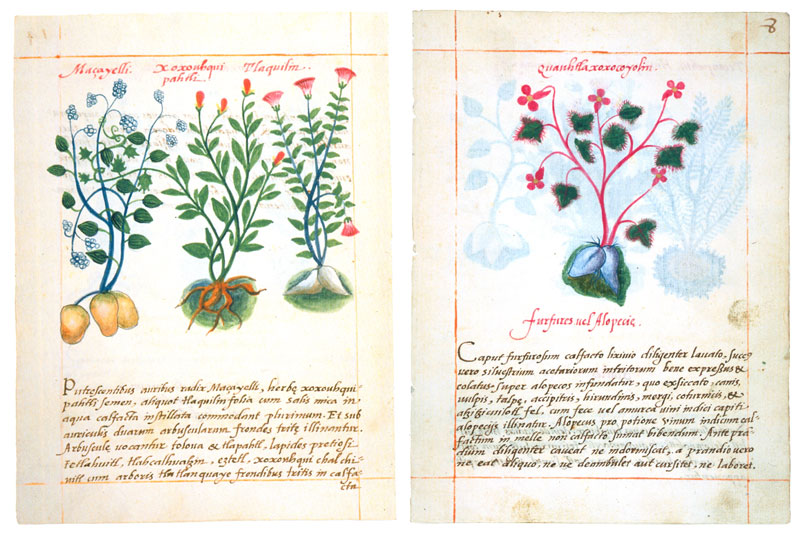 Maçayelli.
Xoxouhqui
pahtli.
Tlaquilin.
Putrescentibus auribus radix Maçayelli, herbę xoxouhqui
pahtli semen, aliquot tlaquilin folia cum salis mica in
aqua calfacta instillata commodant plurimum. Et sub
auriculis duarum arbuscularum frondes tritę illinantur.
Arbusculę vocantur tolova & tlapahtl, lapides pretiosi
tetlahuitl, tlahcalhuatzin, eztetl, xoxouhqui chalchi-
vitl cum arboris tlatlanquaye frondibus tritis in calfa
cta
8
Quauhtla xoxocoyolin.
furfures vel Alopecię.
Caput furfurosum calfacto lixivio diligenter lavato, succ9
vero silvestrium acetariorum intritorum bene expressus &
colatus super alopecos infundatur, quo exsiccato, canis,
vulpis, talpę, accipitris, hirundinis, mergi, coturnicis, &
atzitzicuilotl fel, cum fece vel amurca vini indici capiti
alopecijs illinatur. Alopecus pro potione vinum indicum cal-
factum in melle non calfacto, sumat bibendum. Ante pran
dium diligenter caveat ne indormiscat, a prandio vero
ne eat aliquo, ne ve deambulet aut cursitet, ne laboret.